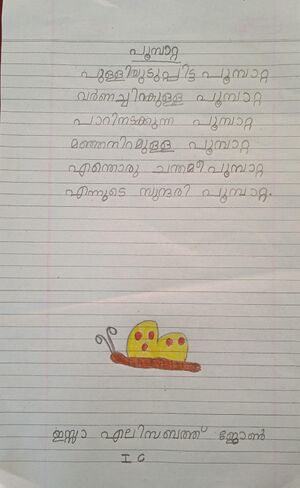 പൂമ്പാറ്റ
പുള്ളിയുടുപ്പിട്ട പൂമ്പാറ്റ
വർണച്ചിറകുള്ള പൂമ്പാറ്റ
പാറിനടക്കുന്ന പൂമ്പാറ്റ
മഞ്ഞനിറമുള്ള പൂമ്പാറ്റ
എന്തൊരു ചന്തമീ പൂമ്പാറ്റ
എന്നുടെ സുന്ദരി പൂമ്പാറ്റ.
ഇസ്സാ എലിസബത്ത് ജ്ജോൺ
I C